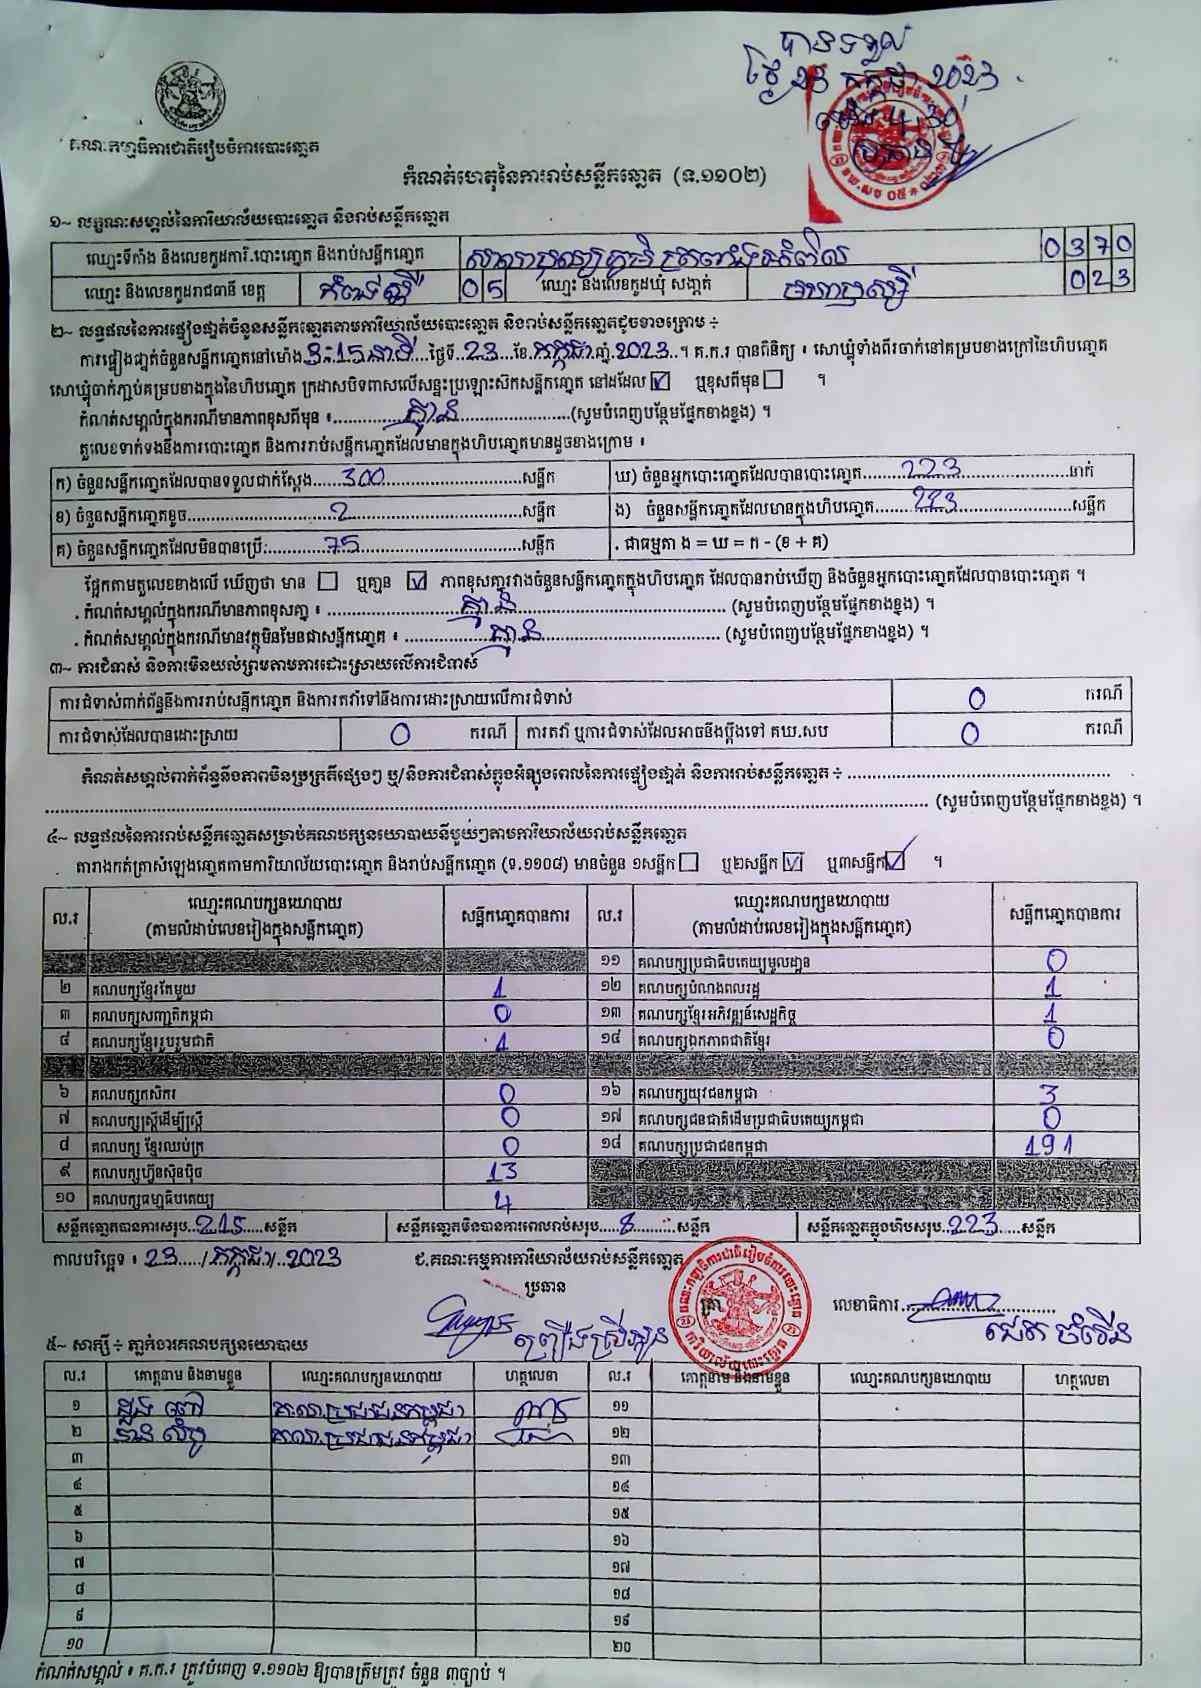 បានទទួល
ថ្ងៃ 23 កក្កដា 2023
ម៉ោង 4:30
គណៈកម្មាធិការជាតិរៀបចំការបោះឆ្នោត
កំណត់ហេតុនៃការរាប់សន្លឹកឆ្នោត (ទ.១១០២)
១~ លក្ខណៈសម្គាល់នៃការិយាល័យបោះឆ្នោត និងរាប់សន្លឹកឆ្នោត
ឈ្មោះទីតាំង និងលេខកូដការិ.បោះឆ្នោត និងរាប់សន្លឹកឆ្នោត 0370
ឈ្មោះ និងលេខកូដរាជធានី ខេត្ត កំពង់ស្ពឺ 05 ឈ្មោះ និងលេខកូដឃុំ សង្កាត់ មហាឫស្សី 023
២~ លទ្ធផលនៃការផ្ទៀងផ្ទាត់ចំនួនសន្លឹកឆ្នោតតាមការិយាល័យបោះឆ្នោត និងរាប់សន្លឹកឆ្នោតដូចខាងក្រោម ÷
ការផ្ទៀងផ្ទាត់ចំនួនសន្លឹកឆ្នោតនៅម៉ោង 3:15នាទី ថ្ងៃទី 23 ខែ កក្កដា ឆ្នាំ 2023 ។ គ.ក.រ បានពិនិត្យ ៖ សោឃ្លុំទាំងពីរចាក់នៅគម្របខាងក្រៅនៃហិបឆ្នោត
សោឃ្លុំចាក់ភ្ជាប់គម្របខាងក្នុងនៃហិបឆ្នោត ក្រដាសបិទពាសលើសន្ទះប្រឡោះស៊កសន្លឹកឆ្នោត នៅដដែល ☑ ឬខុសពីមុន ☐ ។
កំណត់សម្គាល់ក្នុងករណីមានភាពខុសពីមុន ៖ គ្មាន (សូមបំពេញបន្ថែមផ្នែកខាងខ្នង) ។
តួលេខទាក់ទងនឹងការបោះឆ្នោត និងការរាប់សន្លឹកឆ្នោតដែលមានក្នុងហិបឆ្នោតមានដូចខាងក្រោម ៖
ក) ចំនួនសន្លឹកឆ្នោតដែលបានទទួលជាក់ស្តែង 300 សន្លឹក ឃ) ចំនួនអ្នកបោះឆ្នោតដែលបានបោះឆ្នោត 223 នាក់
ខ) ចំនួនសន្លឹកឆ្នោតខូច 2 សន្លឹក ង) ចំនួនសន្លឹកឆ្នោតដែលមានក្នុងហិបឆ្នោត 223 សន្លឹក
គ) ចំនួនសន្លឹកឆ្នោតដែលមិនបានប្រើ: 75 សន្លឹក . ជាធម្មតា ង = ឃ = ក - (ខ + គ)
ផ្អែកតាមតួលេខខាងលើ ឃើញថា មាន ☐ ឬគ្មាន ☑ ភាពខុសគ្នារវាងចំនួនសន្លឹកឆ្នោតក្នុងហិបឆ្នោត ដែលបានរាប់ឃើញ និងចំនួនអ្នកបោះឆ្នោតដែលបានបោះឆ្នោត ។
. កំណត់សម្គាល់ក្នុងករណីមានភាពខុសគ្នា ៖ គ្មាន (សូមបំពេញបន្ថែមផ្នែកខាងខ្នង) ។
. កំណត់សម្គាល់ក្នុងករណីមានវត្ថុមិនមែនជាសន្លឹកឆ្នោត ៖ គ្មាន (សូមបំពេញបន្ថែមផ្នែកខាងខ្នង) ។
៣~ ការជំទាស់ និងការមិនយល់ព្រមតាមការដោះស្រាយលើការជំទាស់
ការជំទាស់ពាក់ព័ន្ធនឹងការរាប់សន្លឹកឆ្នោត និងការតវ៉ាទៅនឹងការដោះស្រាយលើការជំទាស់ 0 ករណី
ការជំទាស់ដែលបានដោះស្រាយ 0 ករណី ការតវ៉ា ឬការជំទាស់ដែលអាចនឹងប្តឹងទៅ គឃ.សប 0 ករណី
កំណត់សម្គាល់ពាក់ព័ន្ធនឹងភាពមិនប្រក្រតីផ្សេងៗ ឬ/និងការជំទាស់ក្នុងអំឡុងពេលនៃការផ្ទៀងផ្ទាត់ និងការរាប់សន្លឹកឆ្នោត ÷
(សូមបំពេញបន្ថែមផ្នែកខាងខ្នង) ។
៤~ លទ្ធផលនៃការរាប់សន្លឹកឆ្នោតសម្រាប់គណបក្សនយោបាយនីមួយៗតាមការិយាល័យរាប់សន្លឹកឆ្នោត
តារាងកត់ត្រាសំឡេងឆ្នោតតាមការិយាល័យបោះឆ្នោត និងរាប់សន្លឹកឆ្នោត (ទ.១១០៨) មានចំនួន ១សន្លឹក ☐ ឬ២សន្លឹក ☑ ឬ៣សន្លឹក ☑ ។
ល.រ ឈ្មោះគណបក្សនយោបាយ (តាមលំដាប់លេខរៀងក្នុងសន្លឹកឆ្នោត) សន្លឹកឆ្នោតបានការ ល.រ ឈ្មោះគណបក្សនយោបាយ (តាមលំដាប់លេខរៀងក្នុងសន្លឹកឆ្នោត) សន្លឹកឆ្នោតបានការ
១១ គណបក្សប្រជាធិបតេយ្យមូលដ្ឋាន 0
២ គណបក្សខ្មែរតែមួយ 1 ១២ គណបក្សបំណងពលរដ្ឋ 1
៣ គណបក្សសញ្ជាតិកម្ពុជា 0 ១៣ គណបក្សខ្មែរអភិវឌ្ឍន៍សេដ្ឋកិច្ច 1
៤ គណបក្សខ្មែររួបរួមជាតិ 1 ១៤ គណបក្សឯកភាពជាតិខ្មែរ 0
៦ គណបក្សកសិករ 0 ១៦ គណបក្សយុវជនកម្ពុជា 3
៧ គណបក្សស្ត្រីដើម្បីស្ត្រី 0 ១៧ គណបក្សជនជាតិដើមប្រជាធិបតេយ្យកម្ពុជា 0
៨ គណបក្ស ខ្មែរឈប់ក្រ 0 ១៨ គណបក្សប្រជាជនកម្ពុជា 191
៩ គណបក្សហ៊្វុនស៊ិនប៉ិច 13
១០ គណបក្សធម្មាធិបតេយ្យ 4
សន្លឹកឆ្នោតបានការសរុប 215 សន្លឹក សន្លឹកឆ្នោតមិនបានការពេលរាប់សរុប 8 សន្លឹក សន្លឹកឆ្នោតក្នុងហិបសរុប 223 សន្លឹក
កាលបរិច្ឆេទ ៖ 23 / កក្កដា / 2023 ជ.គណៈកម្មការការិយាល័យរាប់សន្លឹកឆ្នោត
ប្រធាន
ត្រា
លេខាធិការ
៥~ សាក្សី ÷ ភ្នាក់ងារគណបក្សនយោបាយ
ល.រ គោត្តនាម និងនាមខ្លួន ឈ្មោះគណបក្សនយោបាយ ហត្ថលេខា ល.រ គោត្តនាម និងនាមខ្លួន ឈ្មោះគណបក្សនយោបាយ ហត្ថលេខា
១ គណបក្សប្រជាជនកម្ពុជា ១១
២ គណបក្សប្រជាជនកម្ពុជា ១២
៣ ១៣
៤ ១៤
៥ ១៥
៦ ១៦
៧ ១៧
៨ ១៨
៩ ១៩
១០ ២០
កំណត់សម្គាល់ ៖ គ.ក.រ ត្រូវបំពេញ ទ.១១០២ ឱ្យបានត្រឹមត្រូវ ចំនួន ៣ច្បាប់ ។